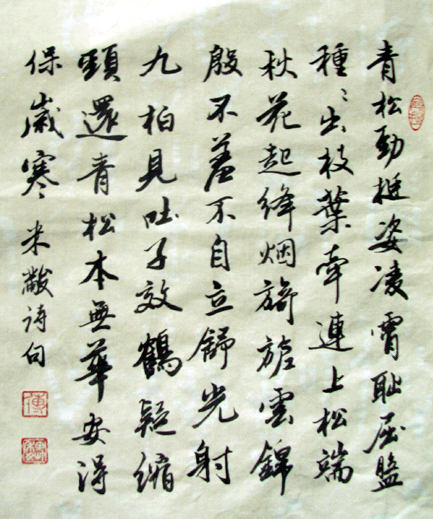 青松勁挺姿凌霄耻屈盤
種〻出枝葉牽連上松端
秋花起絳烟旖旎雲錦
殷不羞不自立舒光射
九柏見吐子效鶴疑縮
頸還青松本無華安得
保歲寒 米黻诗句